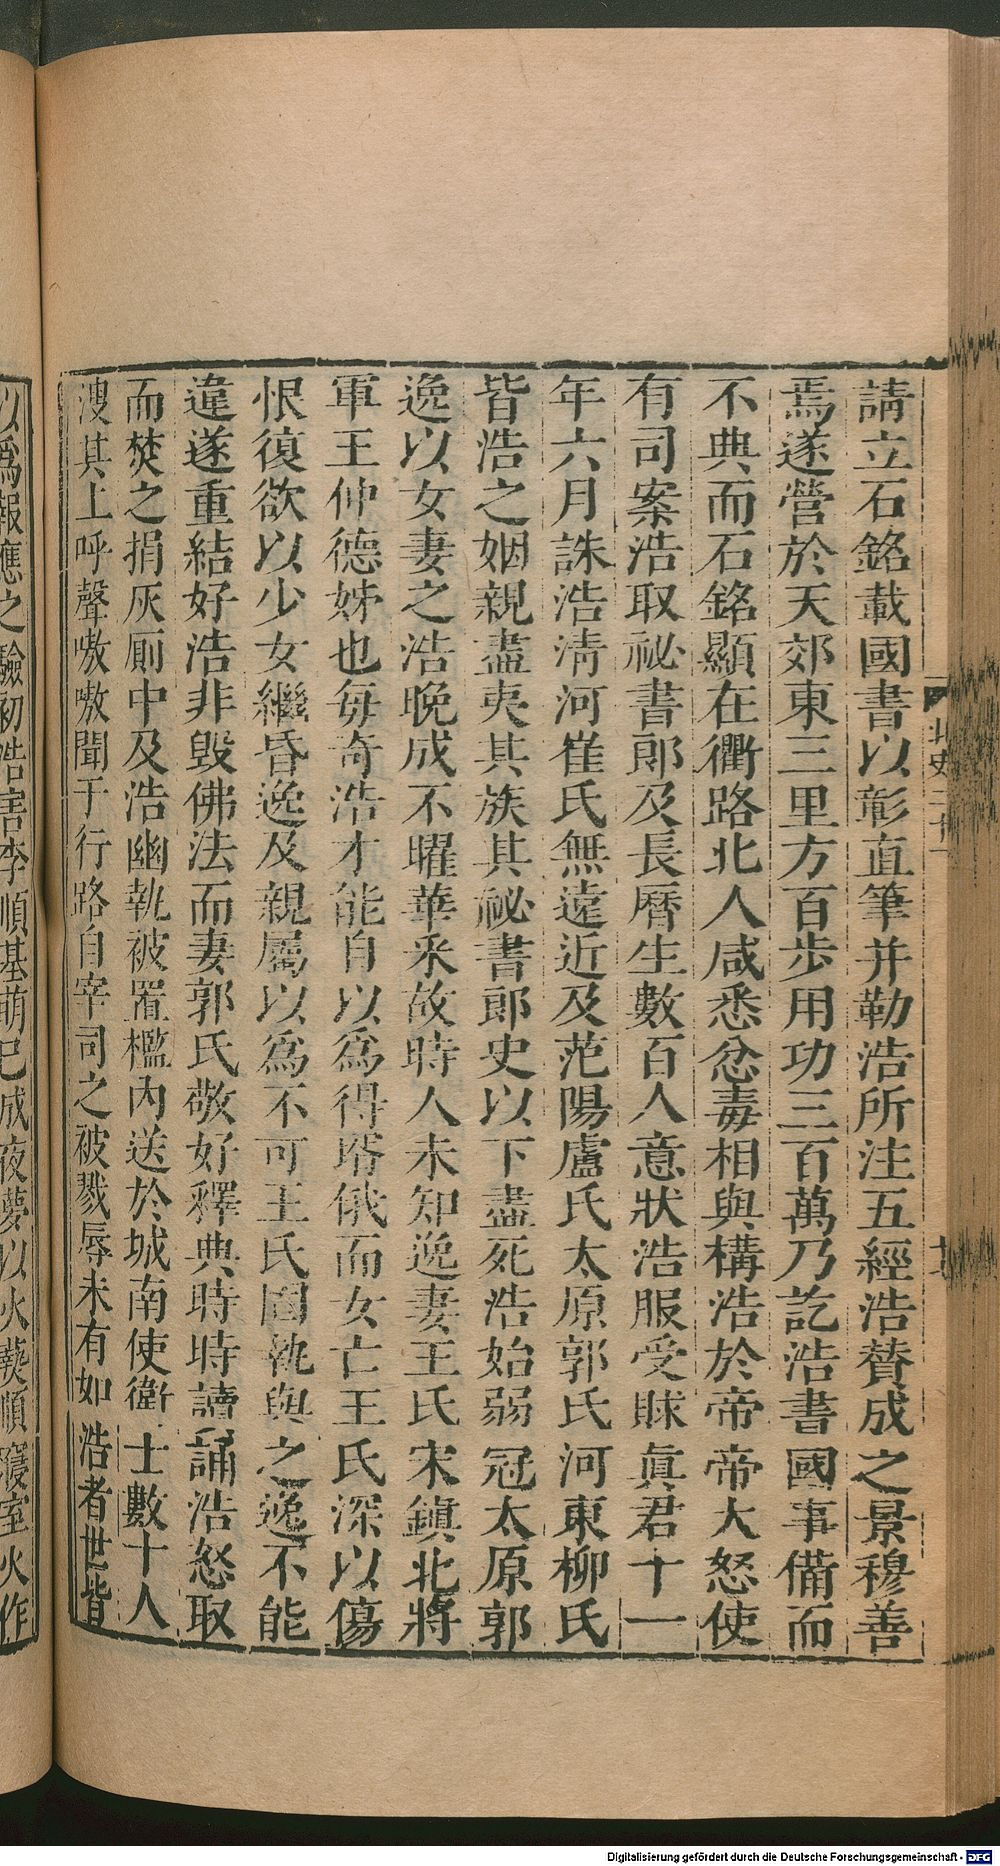 請立石銘載國書以彰直筆并勒浩所注五經浩賛成之景穆善
焉遂營於天郊東三里方百歩用功三百萬乃訖浩書國事備而
不典而石銘顯在衢路北人咸悉忿毒相與構浩於帝帝大怒使
有司案浩取祕書郎及長曆生數百人意狀浩服受賕眞君十一
年六月誅浩淸河崔氏無遠近及范陽盧氏太原郭氏河東柳氏
皆浩之姻親盡夷其族其祕書郎史以下盡死浩始弱冠太原郭
逸以女妻之浩晚成不曜華釆故時人未知逸妻王氏宋鎭北將
軍王仲德姊也毎奇浩才能自以爲得壻俄而女亡王氏深以傷
恨復欲以少女繼昏逸及親屬以爲不可王氏固執與之逸不能
違遂重結好浩非毀佛法而妻郭氏敬好釋典時時讀誦浩怒取
而焚之捐灰厠中及浩幽執被置檻內送於城南使衞士數十人
溲其上呼聲嗷嗷聞于行路自宰司之被戮辱未有如浩者世皆
以爲報應之驗初浩害李順基萌已成夜夢以火爇順寢室火作
北史二十一
Digitalisierung gefördert durch die Deutsche Forschungsgemeinschaft - DFG